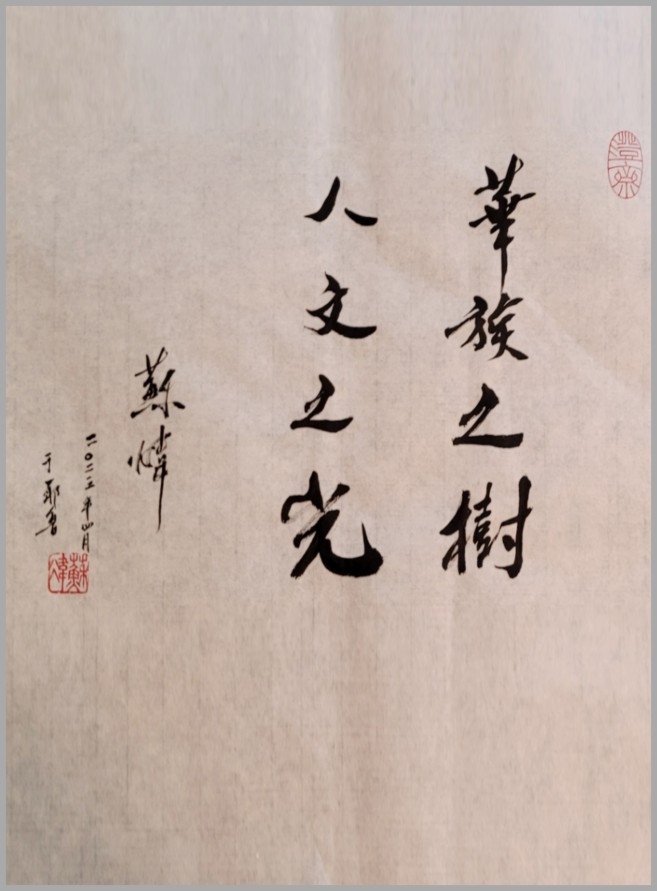 華族之樹
人文之光
蘇煒
二〇二三年四月
于耶魯
蘇煒